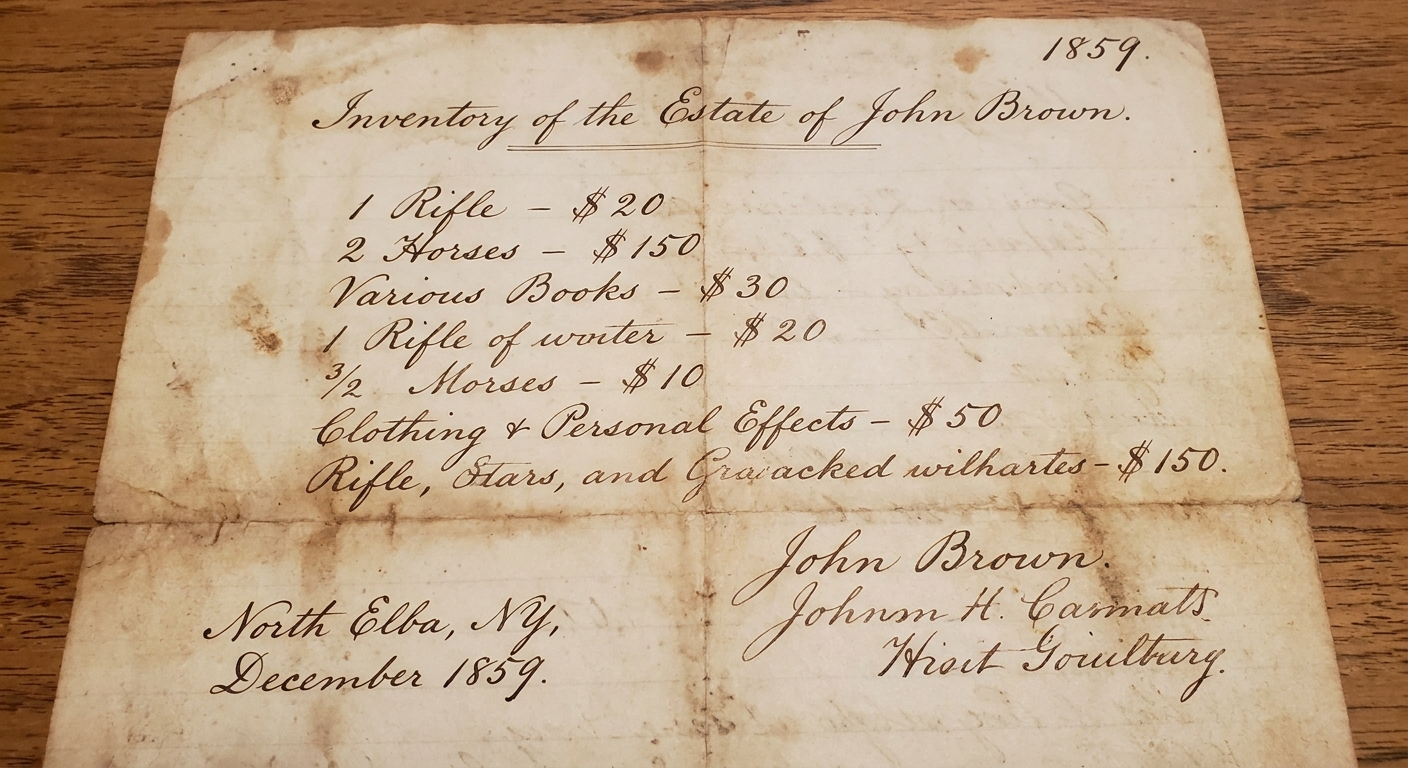 1859.
Inventory of the Estate of John Brown.
1 Rifle – $20
2 Horses – $150
Various Books – $30
1 Rifle of – $20
3/2 Morses – $10
Clothing & Personal Effects – $50
Rifle, Stars, and wilhartes – $150.
John Brown.
Johnm H.
North Elba, NY,
December 1859.